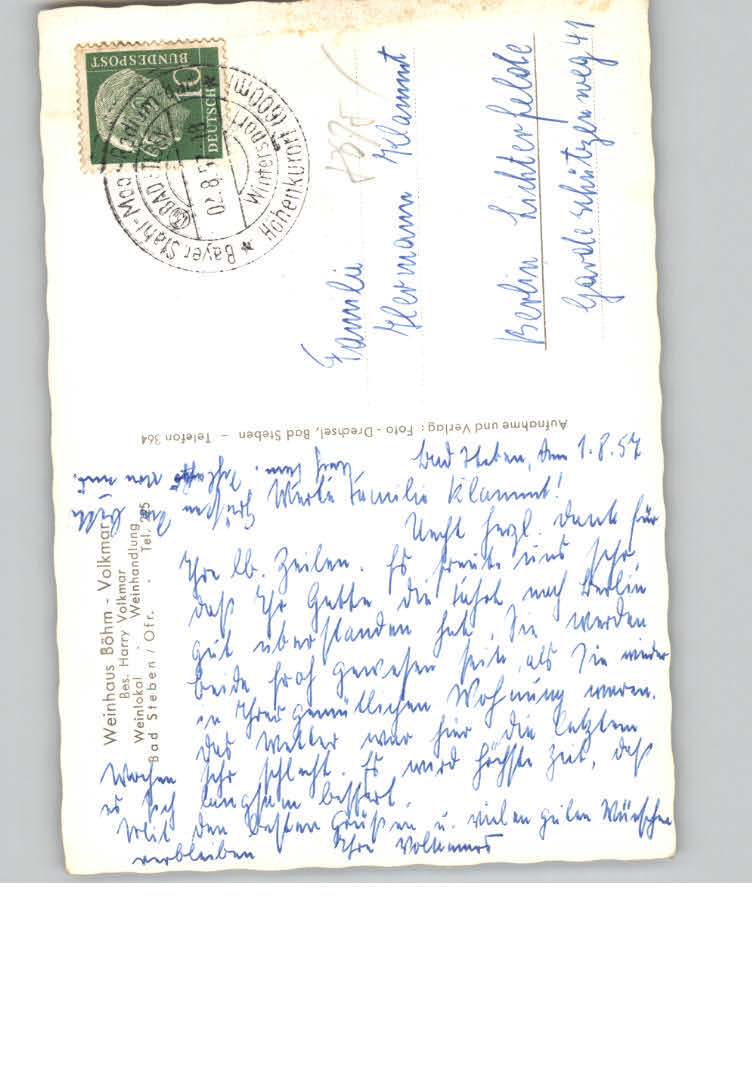 Weinhaus Böhm - Volkmar
Bes. Harry Volkmar
Weinlokal - Weinhandlung
Bad Steben / Ofr. - Tel. 295
Bad Steben, den 1.8.57
Werte Familie Klammt!
Recht herzl. Dank für
Ihre lb. Zeilen. Es freute uns sehr
daß Ihr Gatte die Fahrt nach Berlin
gut überstanden hat. Sie werden
beide froh gewesen sein, als Sie wieder
in Ihrer gemütlichen Wohnung waren.
Das Wetter war hier die letzten
Wochen sehr schlecht. Es wird höchste Zeit, daß
es sich langsam bessert.
Mit den besten Grüßen u. vielen guten Wünschen
verbleiben Ihre Volkmars
Grüßen Sie bitte
von uns.
Aufnahme und Verlag: Foto - Drechsel, Bad Steben – Telefon 364
DEUTSCHE
BUNDESPOST
10
BAD STEBEN
02.8.57
Bayer. Stahl-Moor
Höhenkurort (600m)
Wintersport
Familie
Hermann Klammt
Berlin Lichterfelde
Gardeschützenweg 41